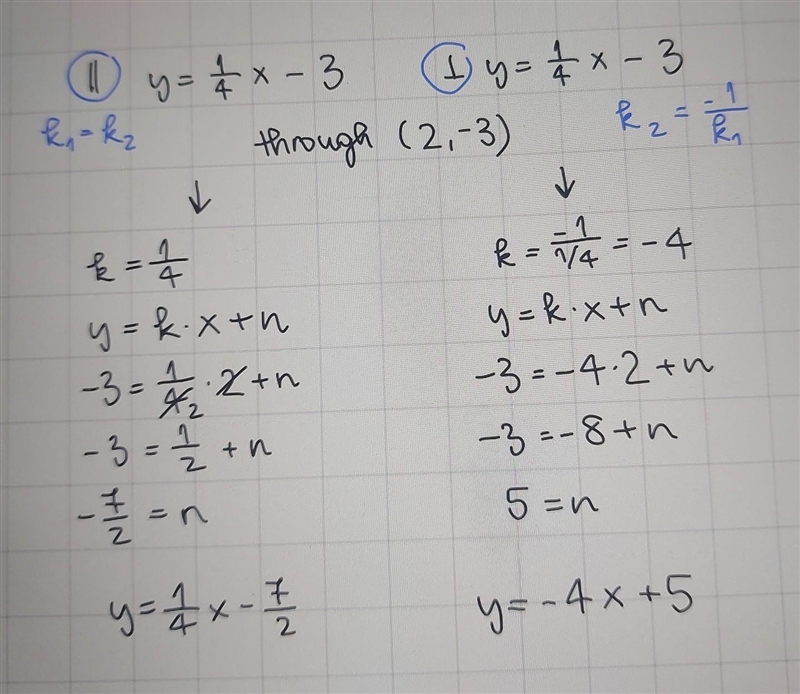 || y = 1/4 x - 3
k₁ = k₂
⊥ y = 1/4 x - 3
k₂ = -1/k₁
through (2, -3)
↓
k = 1/4
y = k · x + n
-3 = 1/4̸₂ · 2̸ + n
-3 = 1/2 + n
-7/2 = n
y = 1/4 x - 7/2
↓
k = -1/1/4 = -4
y = k · x + n
-3 = -4 · 2 + n
-3 = -8 + n
5 = n
y = -4x + 5